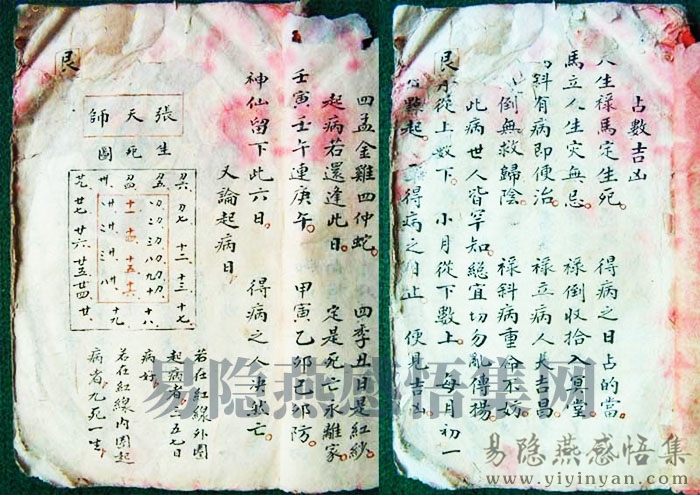 占數吉凶
人生祿馬定生死。得病之日占的當
馬立人生灾無忌。祿倒收拾入冥堂
斜有病即便治。祿斜病重命不妨
倒無救歸陰。祿立病人長吉昌
此病世人皆罕知絕宜切勿亂傳揚
月從上數下。小月從下數上。每月初一
起。得病之日止。便見吉凶
四孟金雞四仲蛇。四季丑日是紅紗
起病若還逢此日。定是死亡永離家
壬寅壬午連庚午。甲寅乙卯己卯防
神仙留下此六日。得病之人決亡
又論起病日
艮
張天師
生死圖
十二 十三 十七
十八
十九
若在紅線外圍
起病者三五七日
病好
若在紅線內圍起
病者九死一生
易隐燕感悟集网
易隐燕感悟集
www.yiyinyan.com